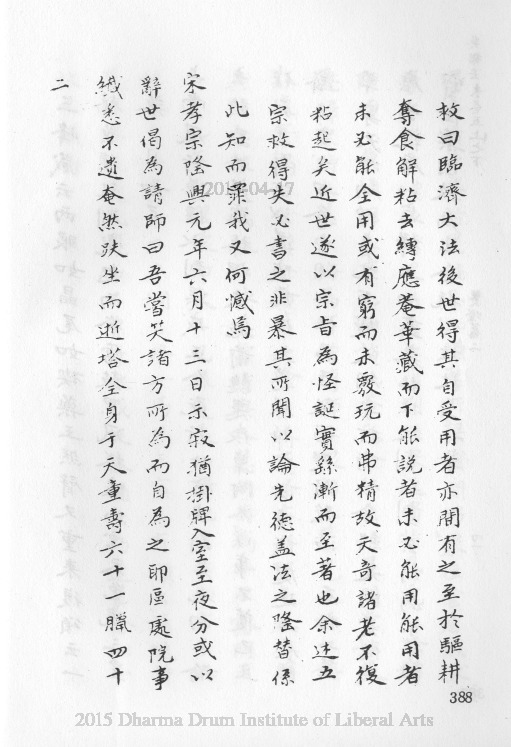 救曰臨濟大法後世得其自受用者亦間有之至於驅耕
奪食解粘去縛應菴華藏而下能說者未必能用能用者
未必能全用或有窮而未覈玩而弗精故天奇諸老不復
粘起矣近世遂以宗旨為怪誕實繇漸而至著也余述五
宗救得失必書之非暴其所聞以論先德盖法之隆替係
此知而罪我又何憾焉
宋孝宗隆興元年六月十三日示寂猶掛牌入室至夜分或以
辭世偈為請師曰吾嘗笑諸方所為而自為之耶區處院事
纎悉不遺奄然趺坐而逝塔全身于天童壽六十一臘四十
二
388
2015-04-17
2015 Dharma Drum Institute of Liberal Arts